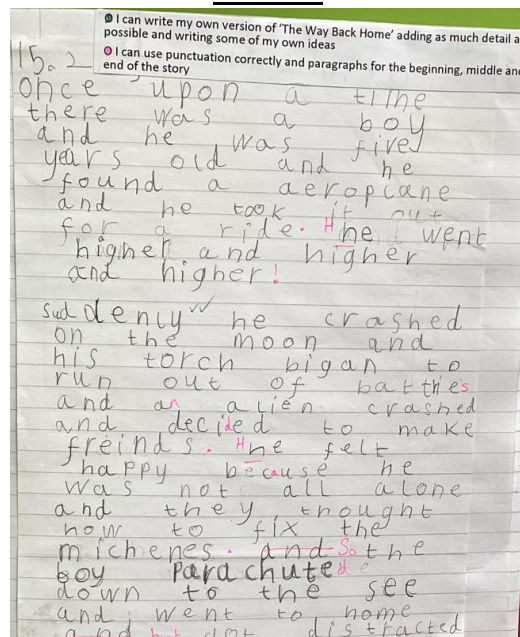 I can write my own version of 'The Way Back Home' adding as much detail a
possible and writing some of my own ideas
I can use punctuation correctly and paragraphs for the beginning, middle an
end of the story
15.2
once upon a time
there was a boy
and he was five
years old and he
found a aeroplane
and he took it out
for a ride. H he went
higher and higher
and higher!
suddenly he crashed
on the moon and
his torch bigan to
run out of battries
and an alien crashed
and decided to make
freinds. H he felt
happy because he
was not all alone
and they thought
how to fix the
michenes. and So the
boy parachuted
down to the see
and went to home
and distracted